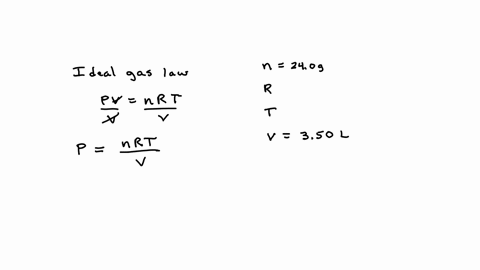 Ideal gas law
PV = nRT
V V
P = nRT
V
n = 24.0g
R
T
V = 3.50 L